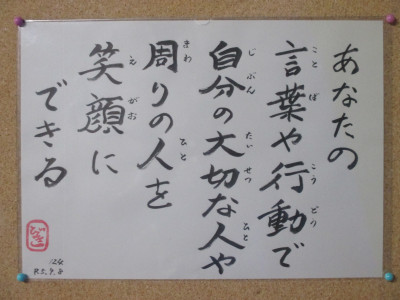 あなたの
ことば こうどう
言葉や行動で
じぶん たいせつ ひと
自分の大切な人や
まわ ひと
周りの人を
えがお
笑顔に
できる